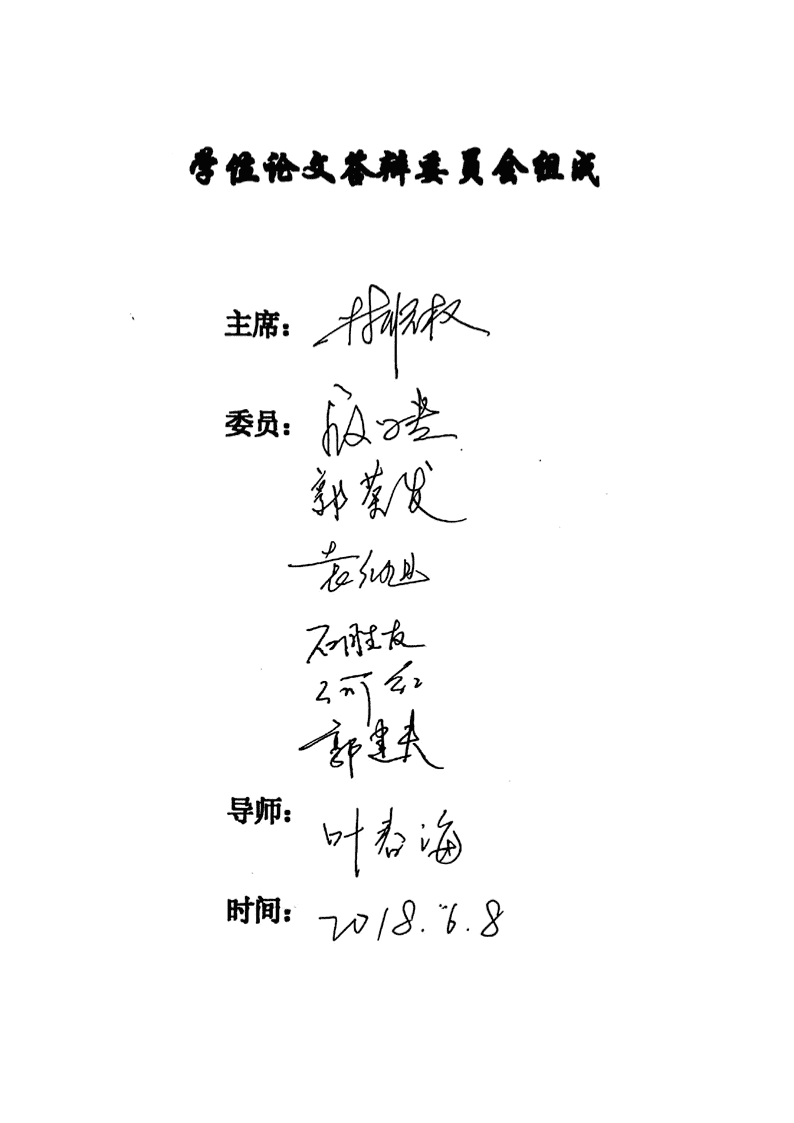 学位论文答辩委员会组成
主席：
委员：
郭荣发
石胜友
河红
郭建夫
导师：叶春海
时间：2018.6.8